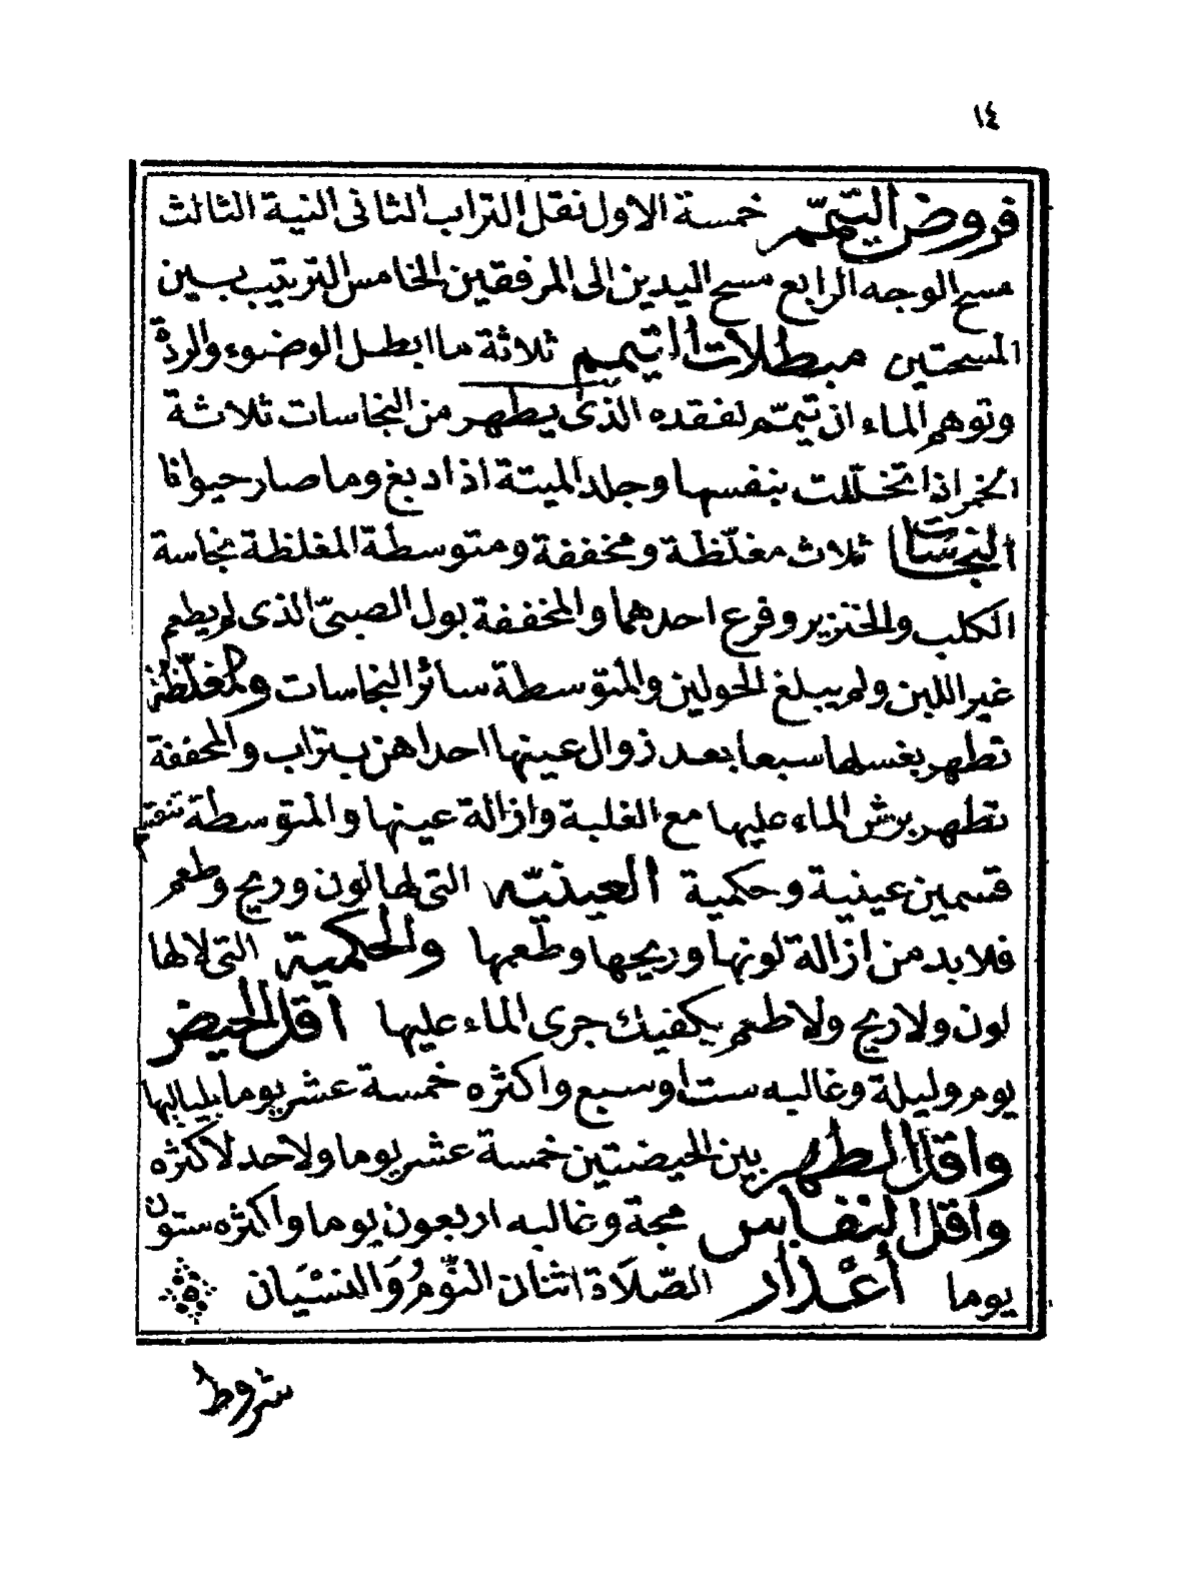 ١٤
فروض التيمّم خمسة الاول نقل التراب الثانى النية الثالث
مسح الوجه الرابع مسح اليدين الى المرفقين الخامس الترتيب بين
المسحتين مبطلات التيمم ثلاثة ما ابطل الوضوء والردة
وتوهم الماء ان تيمّم لفقده الذى يطهر من النجاسات ثلاثة
الخمر اذا تخلّلت بنفسها وجلد الميتة اذا دبغ وما صار حيوانا
النجاسات ثلاث مغلّظة ومخففة ومتوسطة المغلظة نجاسة
الكلب والخنزير وفرع احدهما والمخففة بول الصبىّ الذى لم يطعم
غير اللبن ولم يبلغ الحولين والمتوسطة سائر النجاسات والمغلّظة
تطهر بغسلها سبعا بعد زوال عينها احداهن بتراب والمخففة
تطهر برش الماء عليها مع الغلبة وازالة عينها والمتوسطة تنقسم
قسمين عينية وحكمية العينيّه التى لها لون وريح وطعم
فلا بد من ازالة لونها وريحها وطعمها والحكمية التى لا لها
لون ولا ريح ولا طعم يكفيك جرى الماء عليها اقل الحيض
يوم وليلة وغالبه ست او سبع واكثره خمسة عشر يوما بلياليها
واقل الطهر بين الحيضتين خمسة عشر يوما ولا حد لاكثره
واقل النفاس مجة وغالبه اربعون يوما واكثره ستون
يوما أعْذار الصّلَاة اثنان النّومُ وَالنسْيَان
شروط